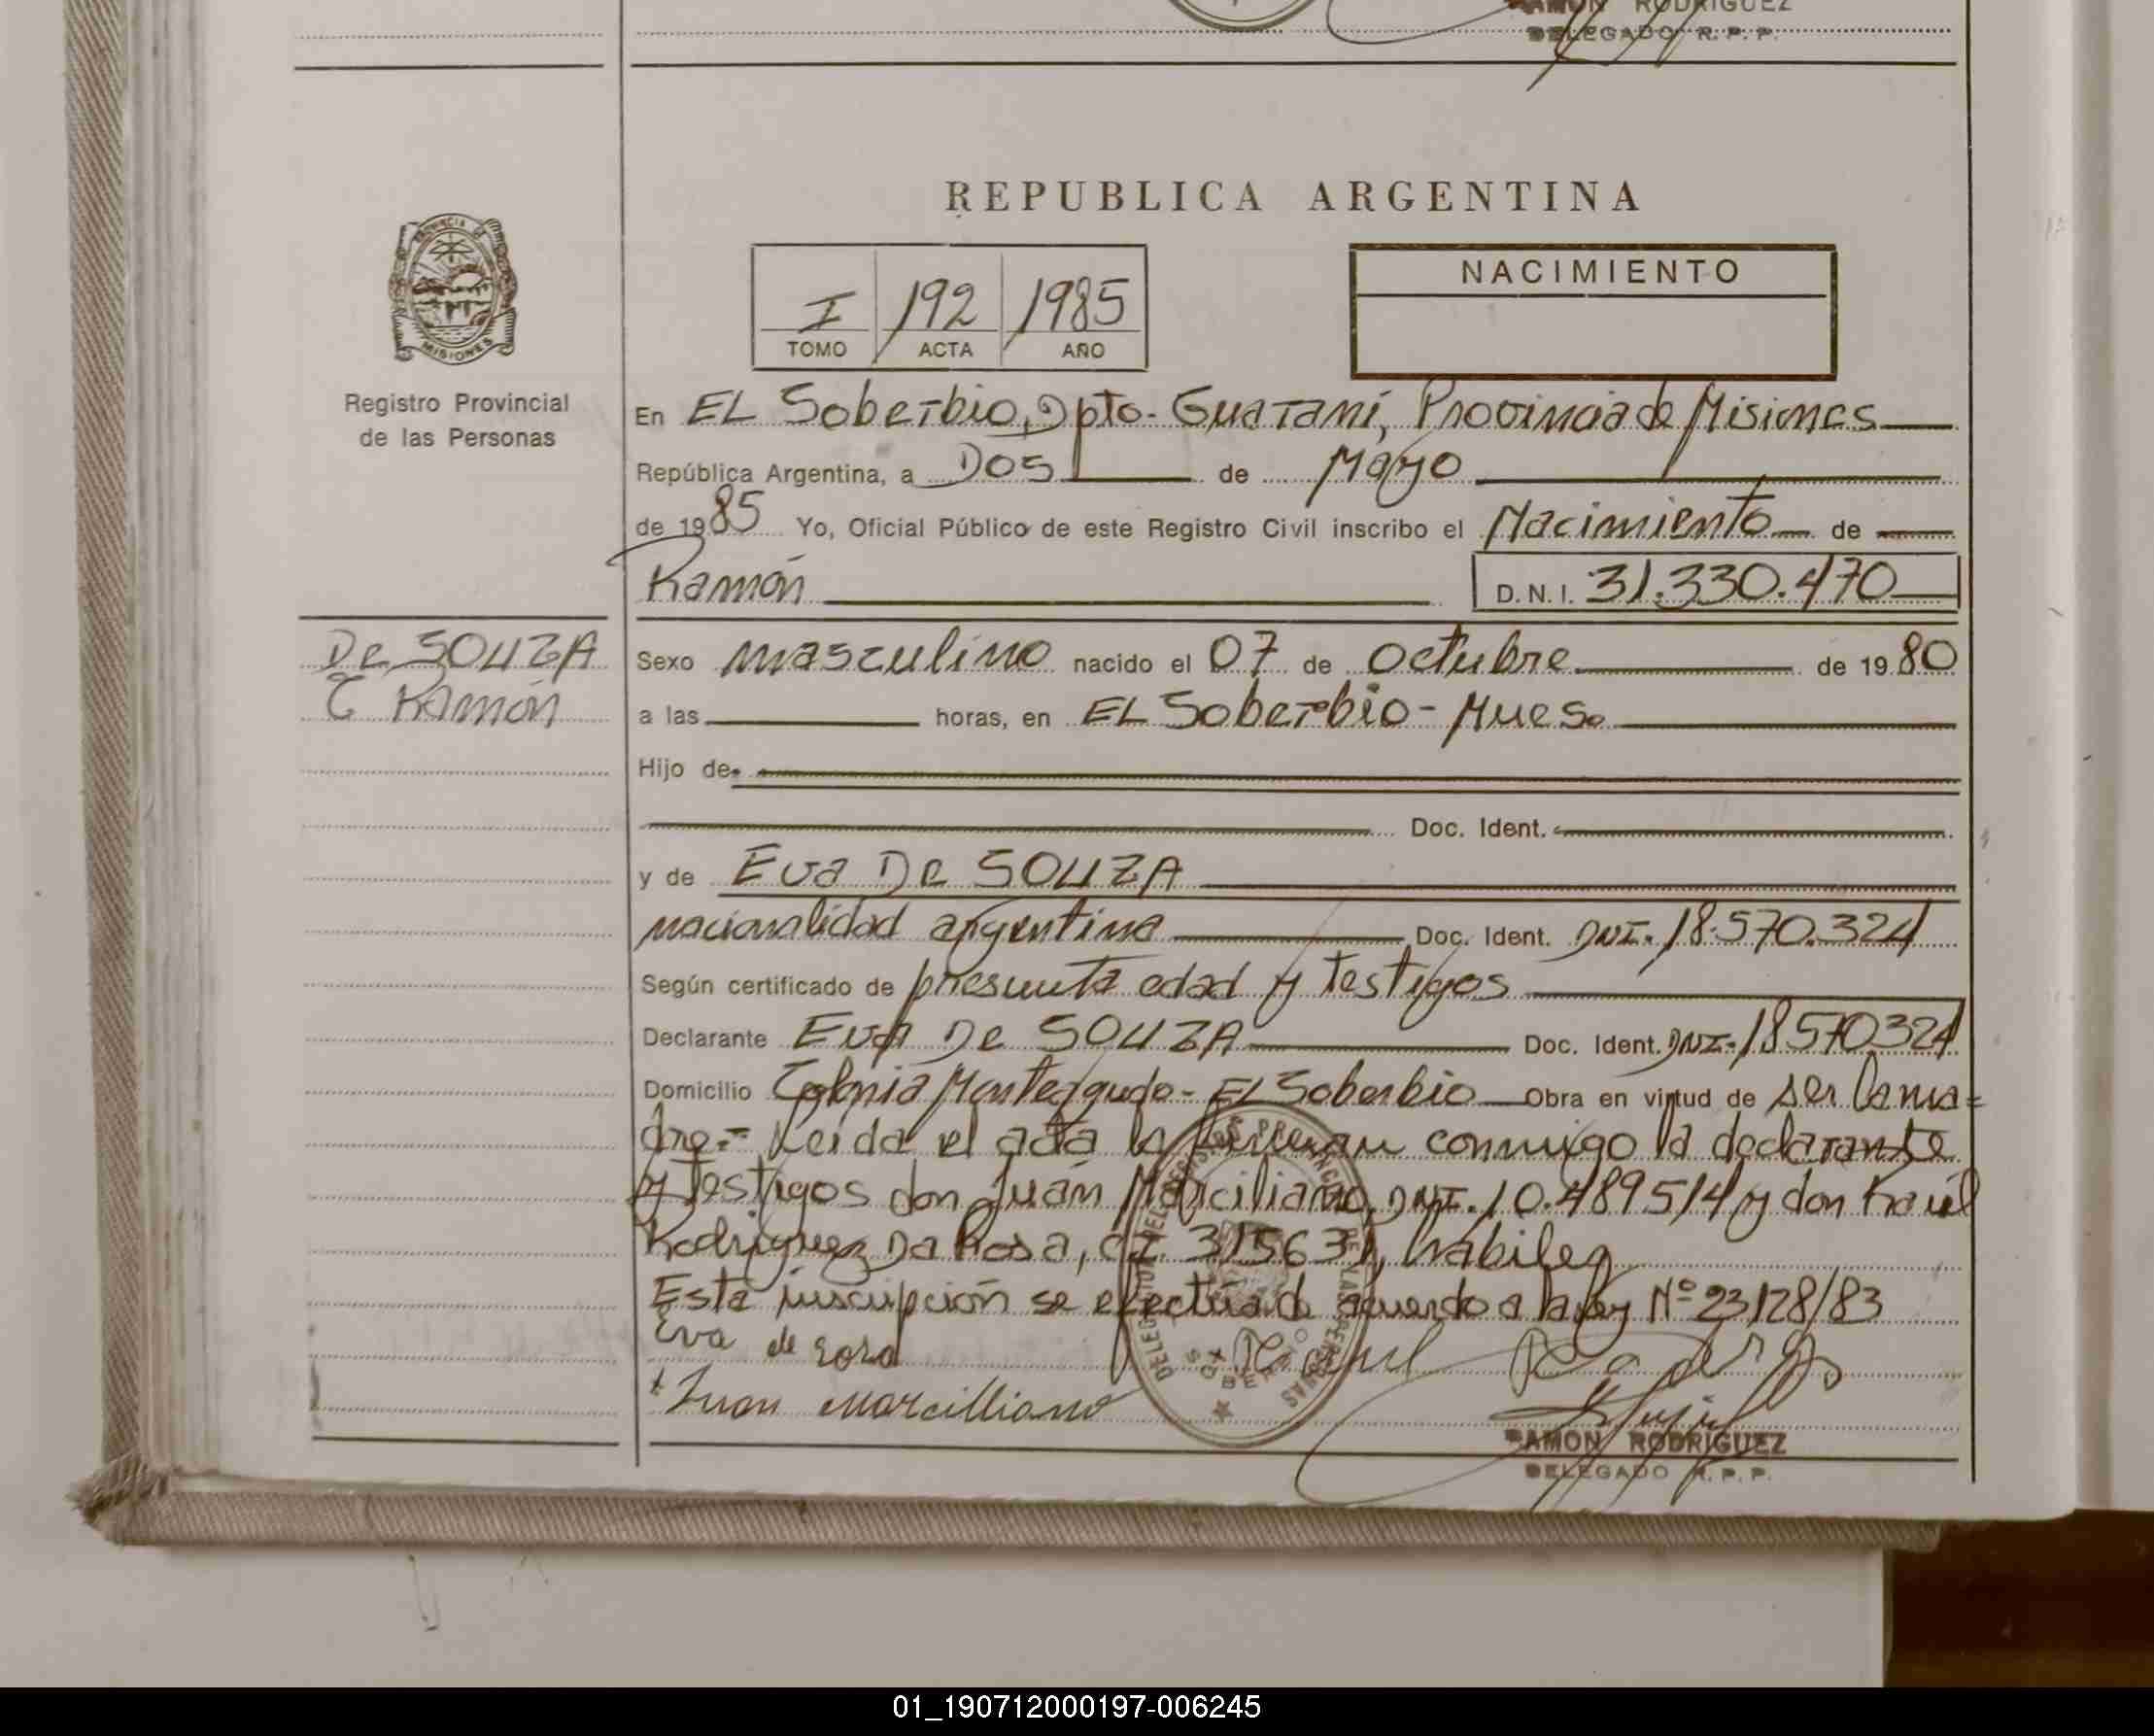 RAMON RODRIGUEZ
DELEGADO R. P. P.
REPUBLICA ARGENTINA
PROVINCIA DE
MISIONES
Registro Provincial
de las Personas
I 192 1985
TOMO ACTA AÑO
NACIMIENTO
En EL Soberbio, Dpto- Guaraní, Provincia de Misiones
República Argentina, a DOS de Mayo
de 1985 Yo, Oficial Público de este Registro Civil inscribo el Nacimiento de
Ramón D.N.I. 31.330.470
De SOUZA
Ramón
Sexo masculino nacido el 07 de Octubre de 1980
a las horas, en EL Soberbio - Mnes.
Hijo de
Doc. Ident.
y de Eva De SOUZA
nacionalidad argentina Doc. Ident. DNI. 18.570.324
Según certificado de presunta edad y testigos
Declarante Eva De SOUZA Doc. Ident. DNI. 18570324
Domicilio Colonia Monteagudo - EL Soberbio Obra en virtud de ser la ma=
dre.= Leída el acta la firman conmigo la declarante
y testigos don Juán Marciliano, DNI. 10.489514 y don Raúl
Rodriguez Da Rosa, CI. 315631, hábiles
Esta inscripción se efectúa de acuerdo a la ley Nº 23128/83
Eva de soza
Raul
Juan Marcilliano
SOBERBIO
RAMON RODRIGUEZ
DELEGADO R. P. P.
01_190712000197-006245